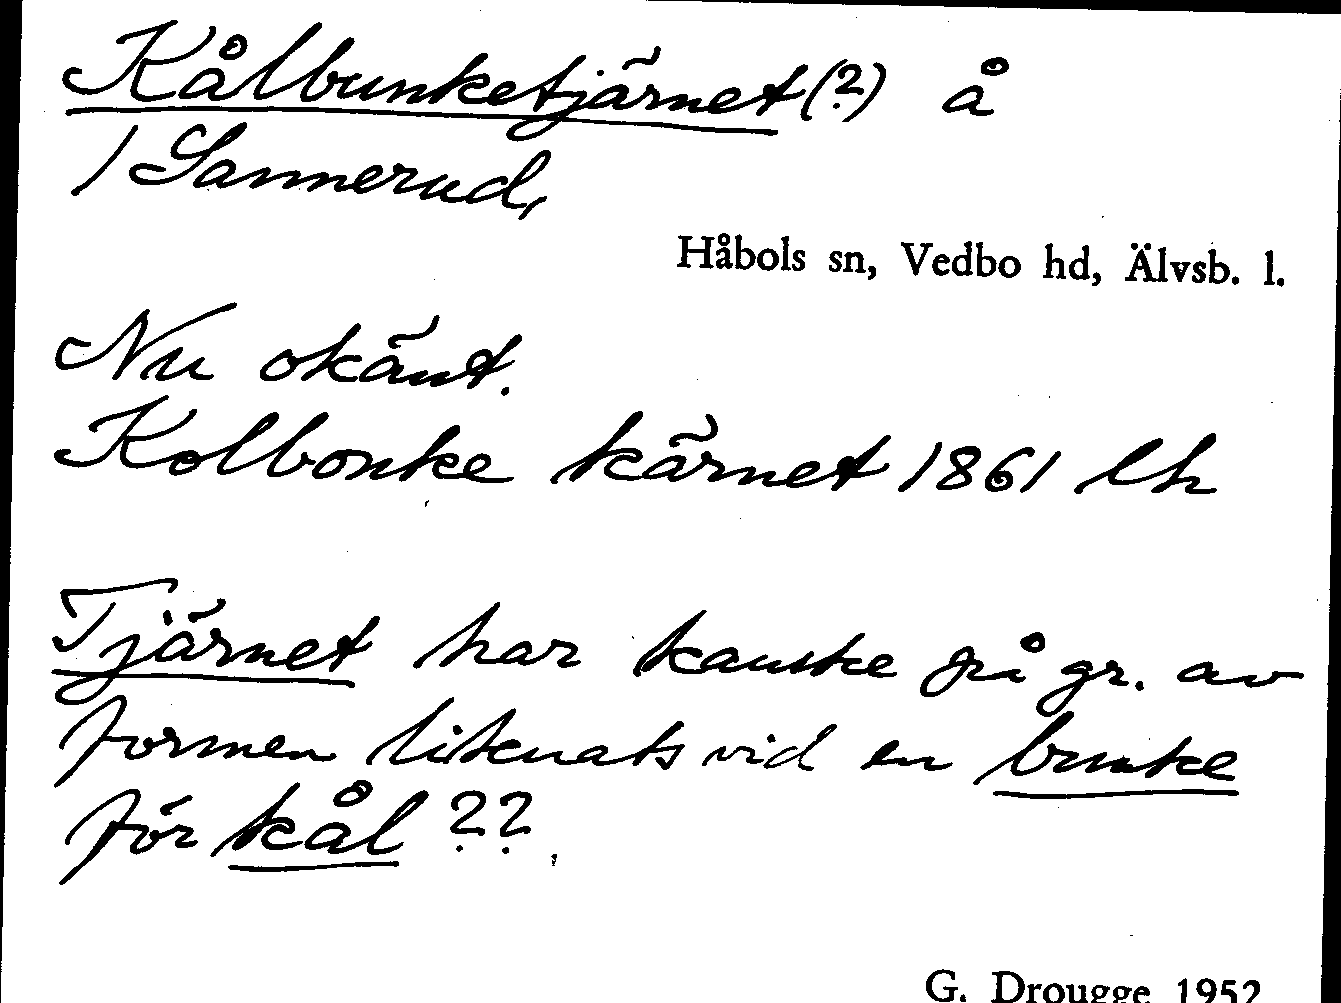 Kålbunketjärnet (?) å
1 Sannerud,
Håbols sn, Vedbo hd, Älvsb. l.
Nu okänt.
Kolbonke kärnet 1861 lh
Tjärnet har kanske på gr. av
formen liknats vid en bunke
för kål ??
G. Drougge 1952